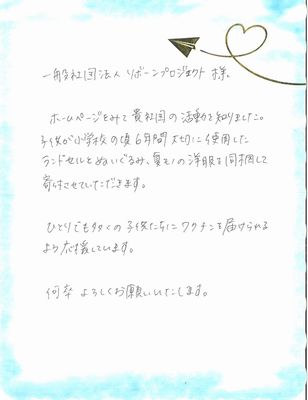 一般社団法人 リボーンプロジェクト 様.
ホームページをみて貴社団の活動を知りました。
子供が小学校の頃6年間大切に使用した
ランドセルとぬいぐるみ、夏モノの洋服を同梱して
寄付させていただきます。
ひとりでも多くの子供たちにワクチンを届けられる
よう応援しています。
何卒 よろしくお願いいたします。